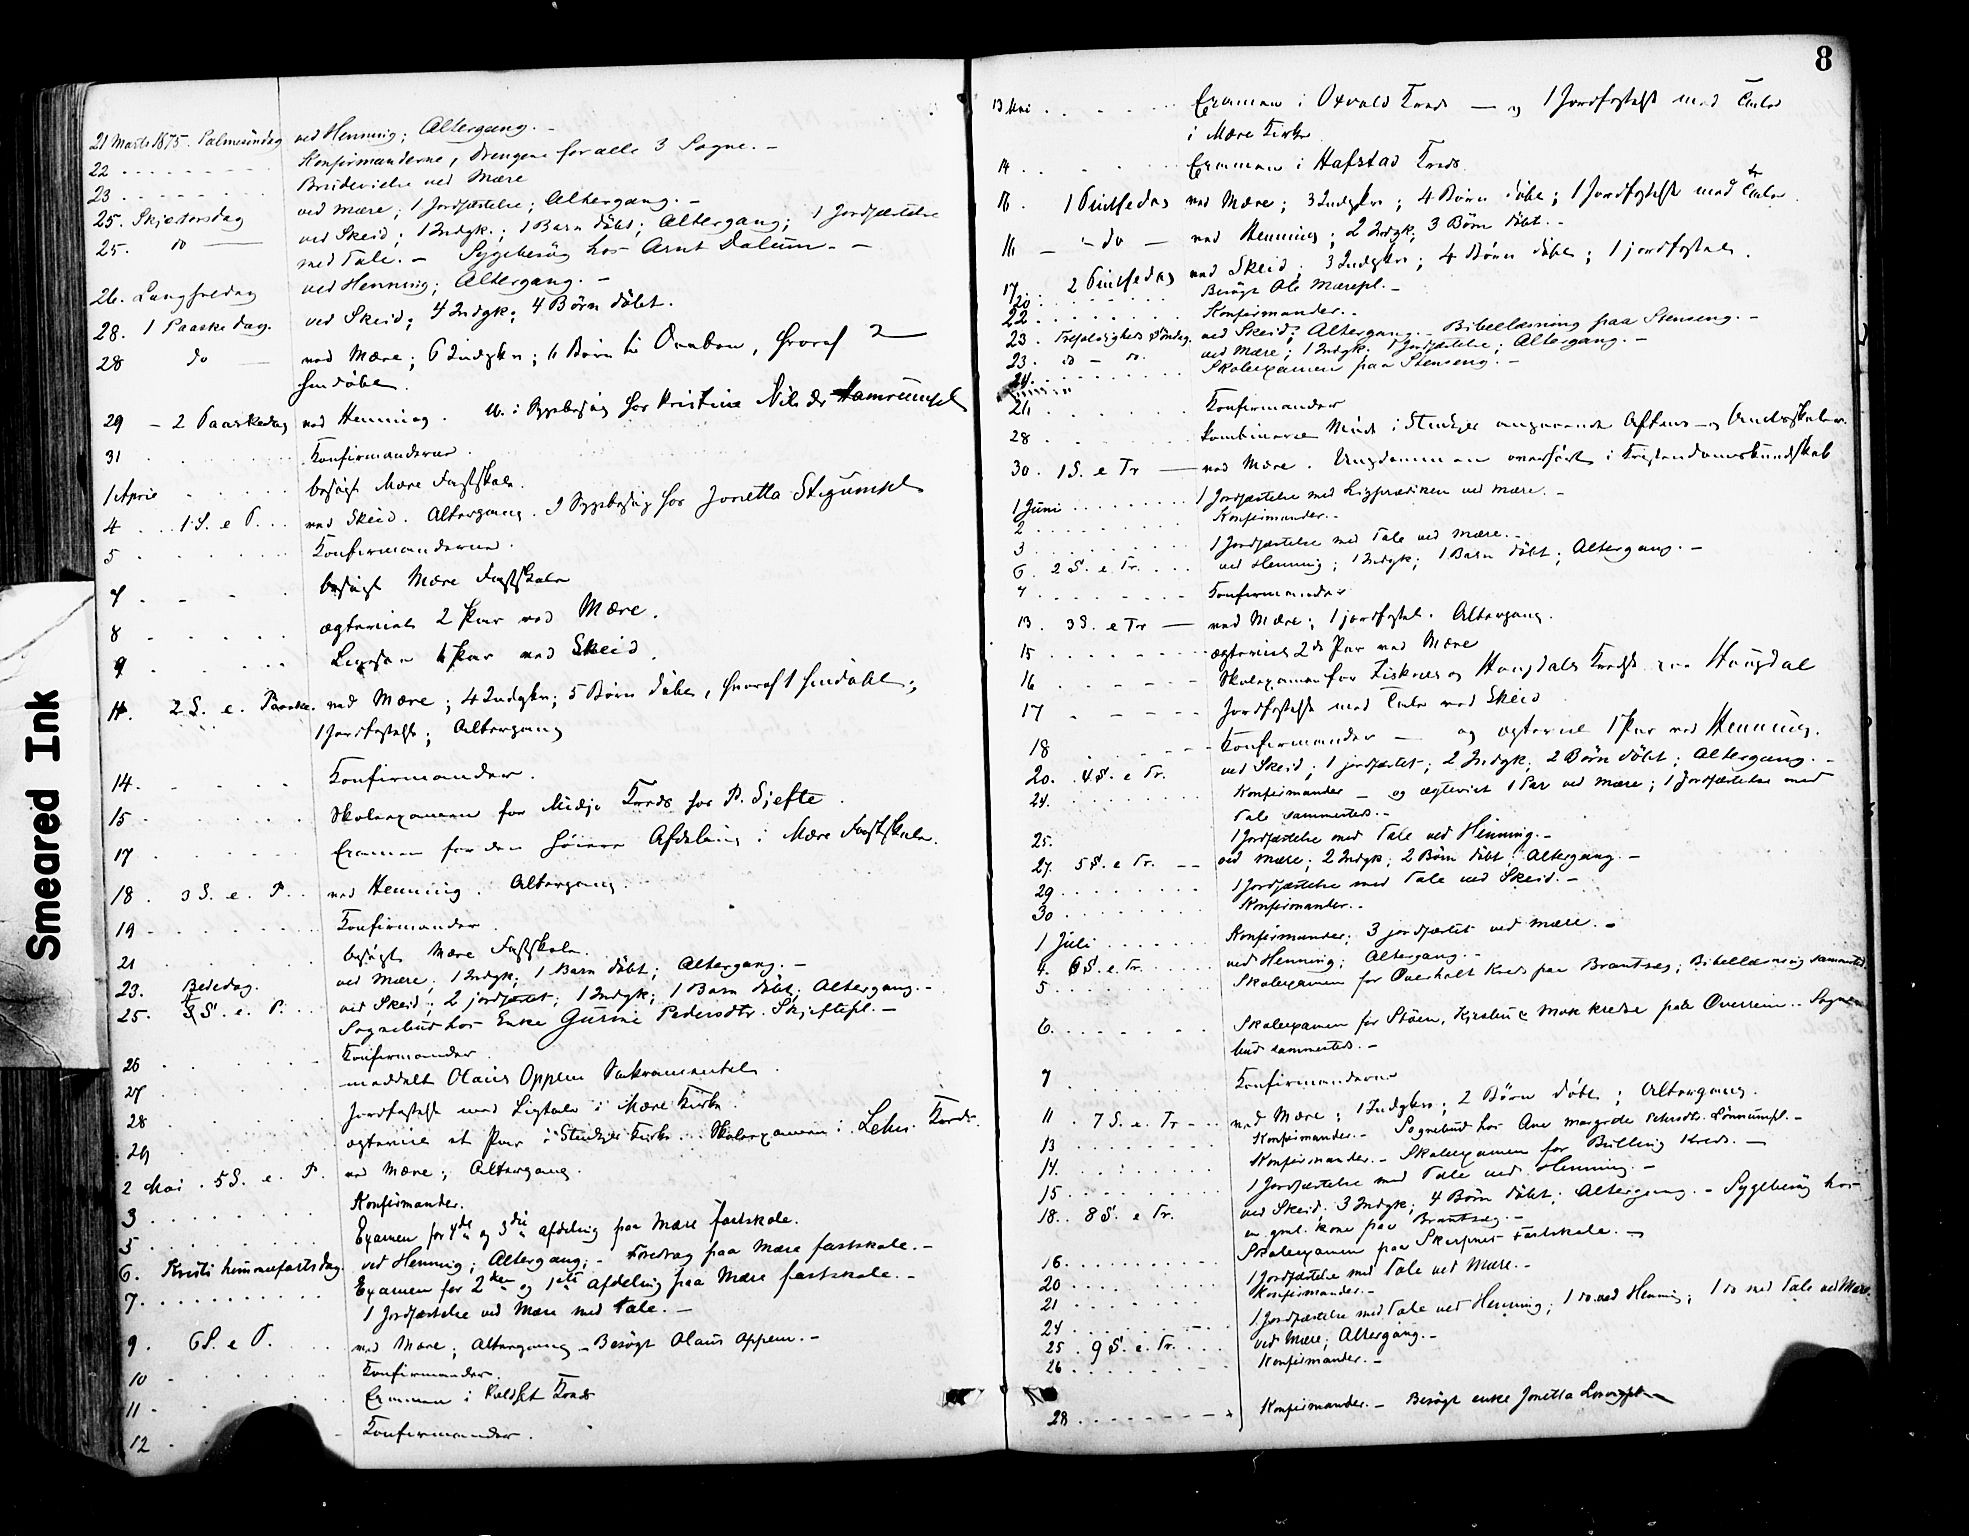 8
Smeared Ink
21 Marts 1875. Palmesøndag ved Henning; Altergang. -
22 Konfirmanderne, Drengene for alle 3 Sogne. -
23 Brudevielse ved Mære
25. Skjetorsdag ved Mære; 1 Jordfæstelse; Altergang. -
25. do ved Skeid; 1 Indgk.; 1 Barn døbt; Altergang; 1 Jordfæstelse
med Tale. - Sygebesøg hos Arnt Dalum. -
26. Langfredag ved Henning; Altergang. -
28. 1 Paaskedag. ved Skeid; 4 Indgk; 4 Børn døbt.
28 do ved Mære; 6 Indgkn; 6 Børn til Daaben, hvoraf 2
hmdøbte.
29 - 2 Paaskedag ved Henning. Sygebesøg hos Kristine Nilsdr
31 Konfirmanderne.
1 April besøgt Mære Fastskole.
4 1 S. e P. ved Skeid. Altergang. Sygebesøg hos Jonetta
5 Konfirmanderne.
7 besøgt Mære Fastskole
8 ægteviet 2 Par ved Mære.
9 Ligesaa Par ved Skeid.
11. 2 S. e. Paaske. ved Mære; 4 Indgkn; 5 Børn døbte, hvoraf 1 hmdøbt;
1 Jordfæstelse; Altergang
14. Konfirmander.
15 Skoleexamen for Kreds hos P. Sjefte.
17 Examen for den høiere Afdeling i Mære Fastskole.
18. 3 S. e. P. ved Henning. Altergang.
19 Konfirmander.
21 besøgt Mære Fastskole.
23. Bededag. ved Mære; 1 Indgk; 1 Barn døbt; Altergang. -
25. 4 S. e. P. ved Skeid; 2 jordfæstet; 1 Indgk; 1 Barn døbt; Altergang. -
Sognebud hos Enke Gurine Pedersdtr. Skjeftepl. -
26 Konfirmander.
27 meddelt Olaus Oppem Sakramentet.
28 Jordfæstelse med Ligtale i Mære Kirke.
29 ægteviet et Par i Stenkjer Kirke. Skoleexamen i Kreds.
2 Mai. 5 S. e. P. ved Mære; Altergang.
3 Konfirmander.
5 Examen for 4de og 3die afdeling paa Mære fastskole.
6. Kristi himmelfartsdag. ved Henning; Altergang; - Foredrag paa Mære fastskole. -
7. Examen for 2den og 1ste afdeling paa Mære fastskole. -
1 Jordfæstelse ved Mære med Tale. -
9. 6 S. e P. ved Mære; Altergang - Besøgt Olaus Oppem. -
10 Konfirmander.
11 Examen i Kreds
12 Konfirmander.
13 Mai Examen i Kreds - og 1 Jordfæstelse med Tale
i Mære Kirke
14 Examen i Hafstad Kreds
16. 1 Pintsedag ved Mære; 3 Indgkn; 4 Børn døbt; 1 Jordfæstelse med Tale.
16 - do - ved Henning; 2 Indgk; 3 Børn døbt. -
17 2 Pintsedag ved Skeid; 3 Indgkn; 4 Børn døbt; 1 jordfæstet.
20. Besøgt Ole Mærepl. -
22 Konfirmander. -
23. Trefoldigheds Søndag. ved Skeid; Altergang. - Bibellæsning paa Stenseng. -
23. do - do. ved Mære; 1 Indgk; 1 Jordfæstelse; Altergang. -
24. Skoleexamen paa Stenseng. -
Konfirmander
28 kombineret Møde i Stenkjer angaaende Aftens- og
30. 1 S. e Tr - ved Mære. Ungdommen overhørt i Kristendomskundskab
1 Juni 1 Jordfæstelse med Ligprædiken ved Mære. -
2 Konfirmander. -
3 1 Jordfæstelse med Tale ved Mære. -
6. 2 S. e Tr. ved Henning; 1 Indgk; 1 Barn døbt; Altergang. -
7 Konfirmander
13. 3 S. e Tr - ved Mære; 1 jordfæstet. Altergang.
15 ægteviet 2 Par ved Mære
16 Skoleexamen for og Haugdals Kreds paa Haugdal
17 Jordfæstelse med Tale ved Skeid
18 Konfirmander - og ægteviet 1 Par ved Henning.
20. 4 S. e Tr. ved Skeid; 1 jordfæstet; 2 Indgk; 2 Børn døbt; Altergang. -
24. Konfirmander - og ægteviet 1 Par ved Mære; 1 Jordfæstelse med
Tale sammesteds. -
25. 1 Jordfæstelse med Tale ved Henning. -
27. 5 S. e Tr. - ved Mære; 2 Indgk; 2 Børn døbt; Altergang. -
29 1 Jordfæstelse med Tale ved Skeid. -
30 Konfirmander. -
1 Juli Konfirmander; 3 jordfæstet ved Mære. -
4. 6 S. e. Tr. ved Henning; Altergang. -
5 Skoleexamen for Kreds paa Brandseg; Bibellæsning sammesteds.
6. Skoleexamen for Støen, Kirsten & Mok kredse paa Overrein. - Sogne-
bud sammesteds. -
7 Konfirmanderne
11. 7 S. e. Tr - ved Mære; 1 Indgkn; 2 Børn døbt; Altergang.
13 Konfirmander. - Sognebud hos Ane Margrete Pehrsdtr. -
14. Konfirmander. - Skoleexamen for Kreds. -
15 1 Jordfæstelse med Tale ved Henning. -
18. 8 S. e Tr. ved Skeid; 3 Indgk; 4 Børn døbt; Altergang. - Sygebesøg hos
en gml. kone paa Brandseg. -
16. Skoleexamen paa fastskole. -
20 1 Jordfæstelse med Tale ved Mære. -
21 Konfirmander. -
24 1 Jordfæstelse med Tale ved Henning; 1 do ved Henning; 1 do med Tale ved Mære.
25. 9 S. e. Tr. ved Mære; Altergang. -
26 Konfirmander. -
28 Konfirmander. - Besøgt enke Jonetta